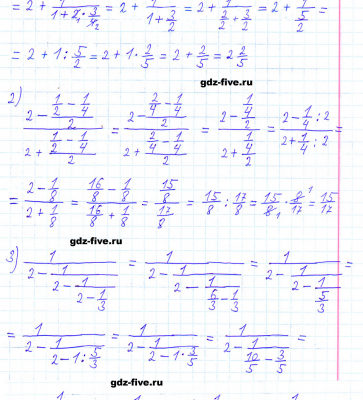 = 2 + 1/(1 + 2₁ · 3/4₂) = 2 + 1/(1 + 3/2) = 2 + 1/(2/2 + 3/2) = 2 + 1/(5/2) =
= 2 + 1 : 5/2 = 2 + 1 · 2/5 = 2 + 2/5 = 2 2/5
gdz-five.ru
2) (2 - (1/2 - 1/4)/2)/(2 + (1/2 - 1/4)/2) = (2 - (2/4 - 1/4)/2)/(2 + (2/4 - 1/4)/2) = (2 - (1/4)/2)/(2 + (1/4)/2) = (2 - 1/4 : 2)/(2 + 1/4 : 2) =
= (2 - 1/8)/(2 + 1/8) = (16/8 - 1/8)/(16/8 + 1/8) = (15/8)/(17/8) = 15/8 : 17/8 = 15/8₁ · 8¹/17 = 15/17
gdz-five.ru
3) 1/(2 - 1/(2 - 1/(2 - 1/3))) = 1/(2 - 1/(2 - 1/(6/3 - 1/3))) = 1/(2 - 1/(2 - 1/(5/3))) =
= 1/(2 - 1/(2 - 1 : 5/3)) = 1/(2 - 1/(2 - 1 · 3/5)) = 1/(2 - 1/(10/5 - 3/5)) =
gdz-five.ru